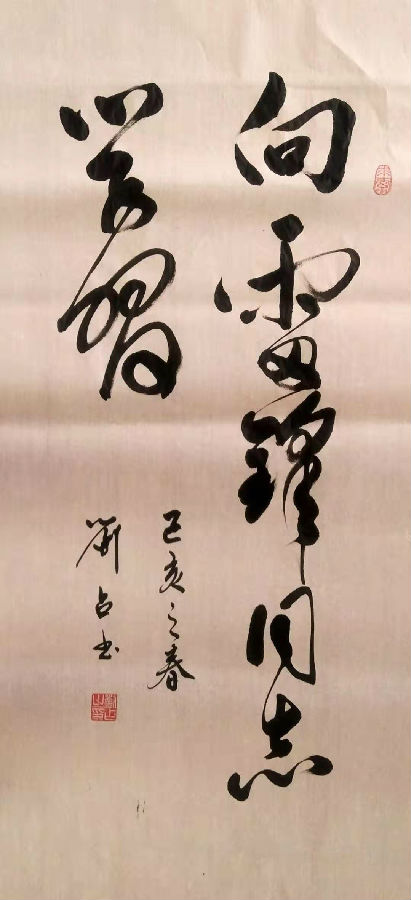 向雷锋同志
学习
己亥之春
刘占书